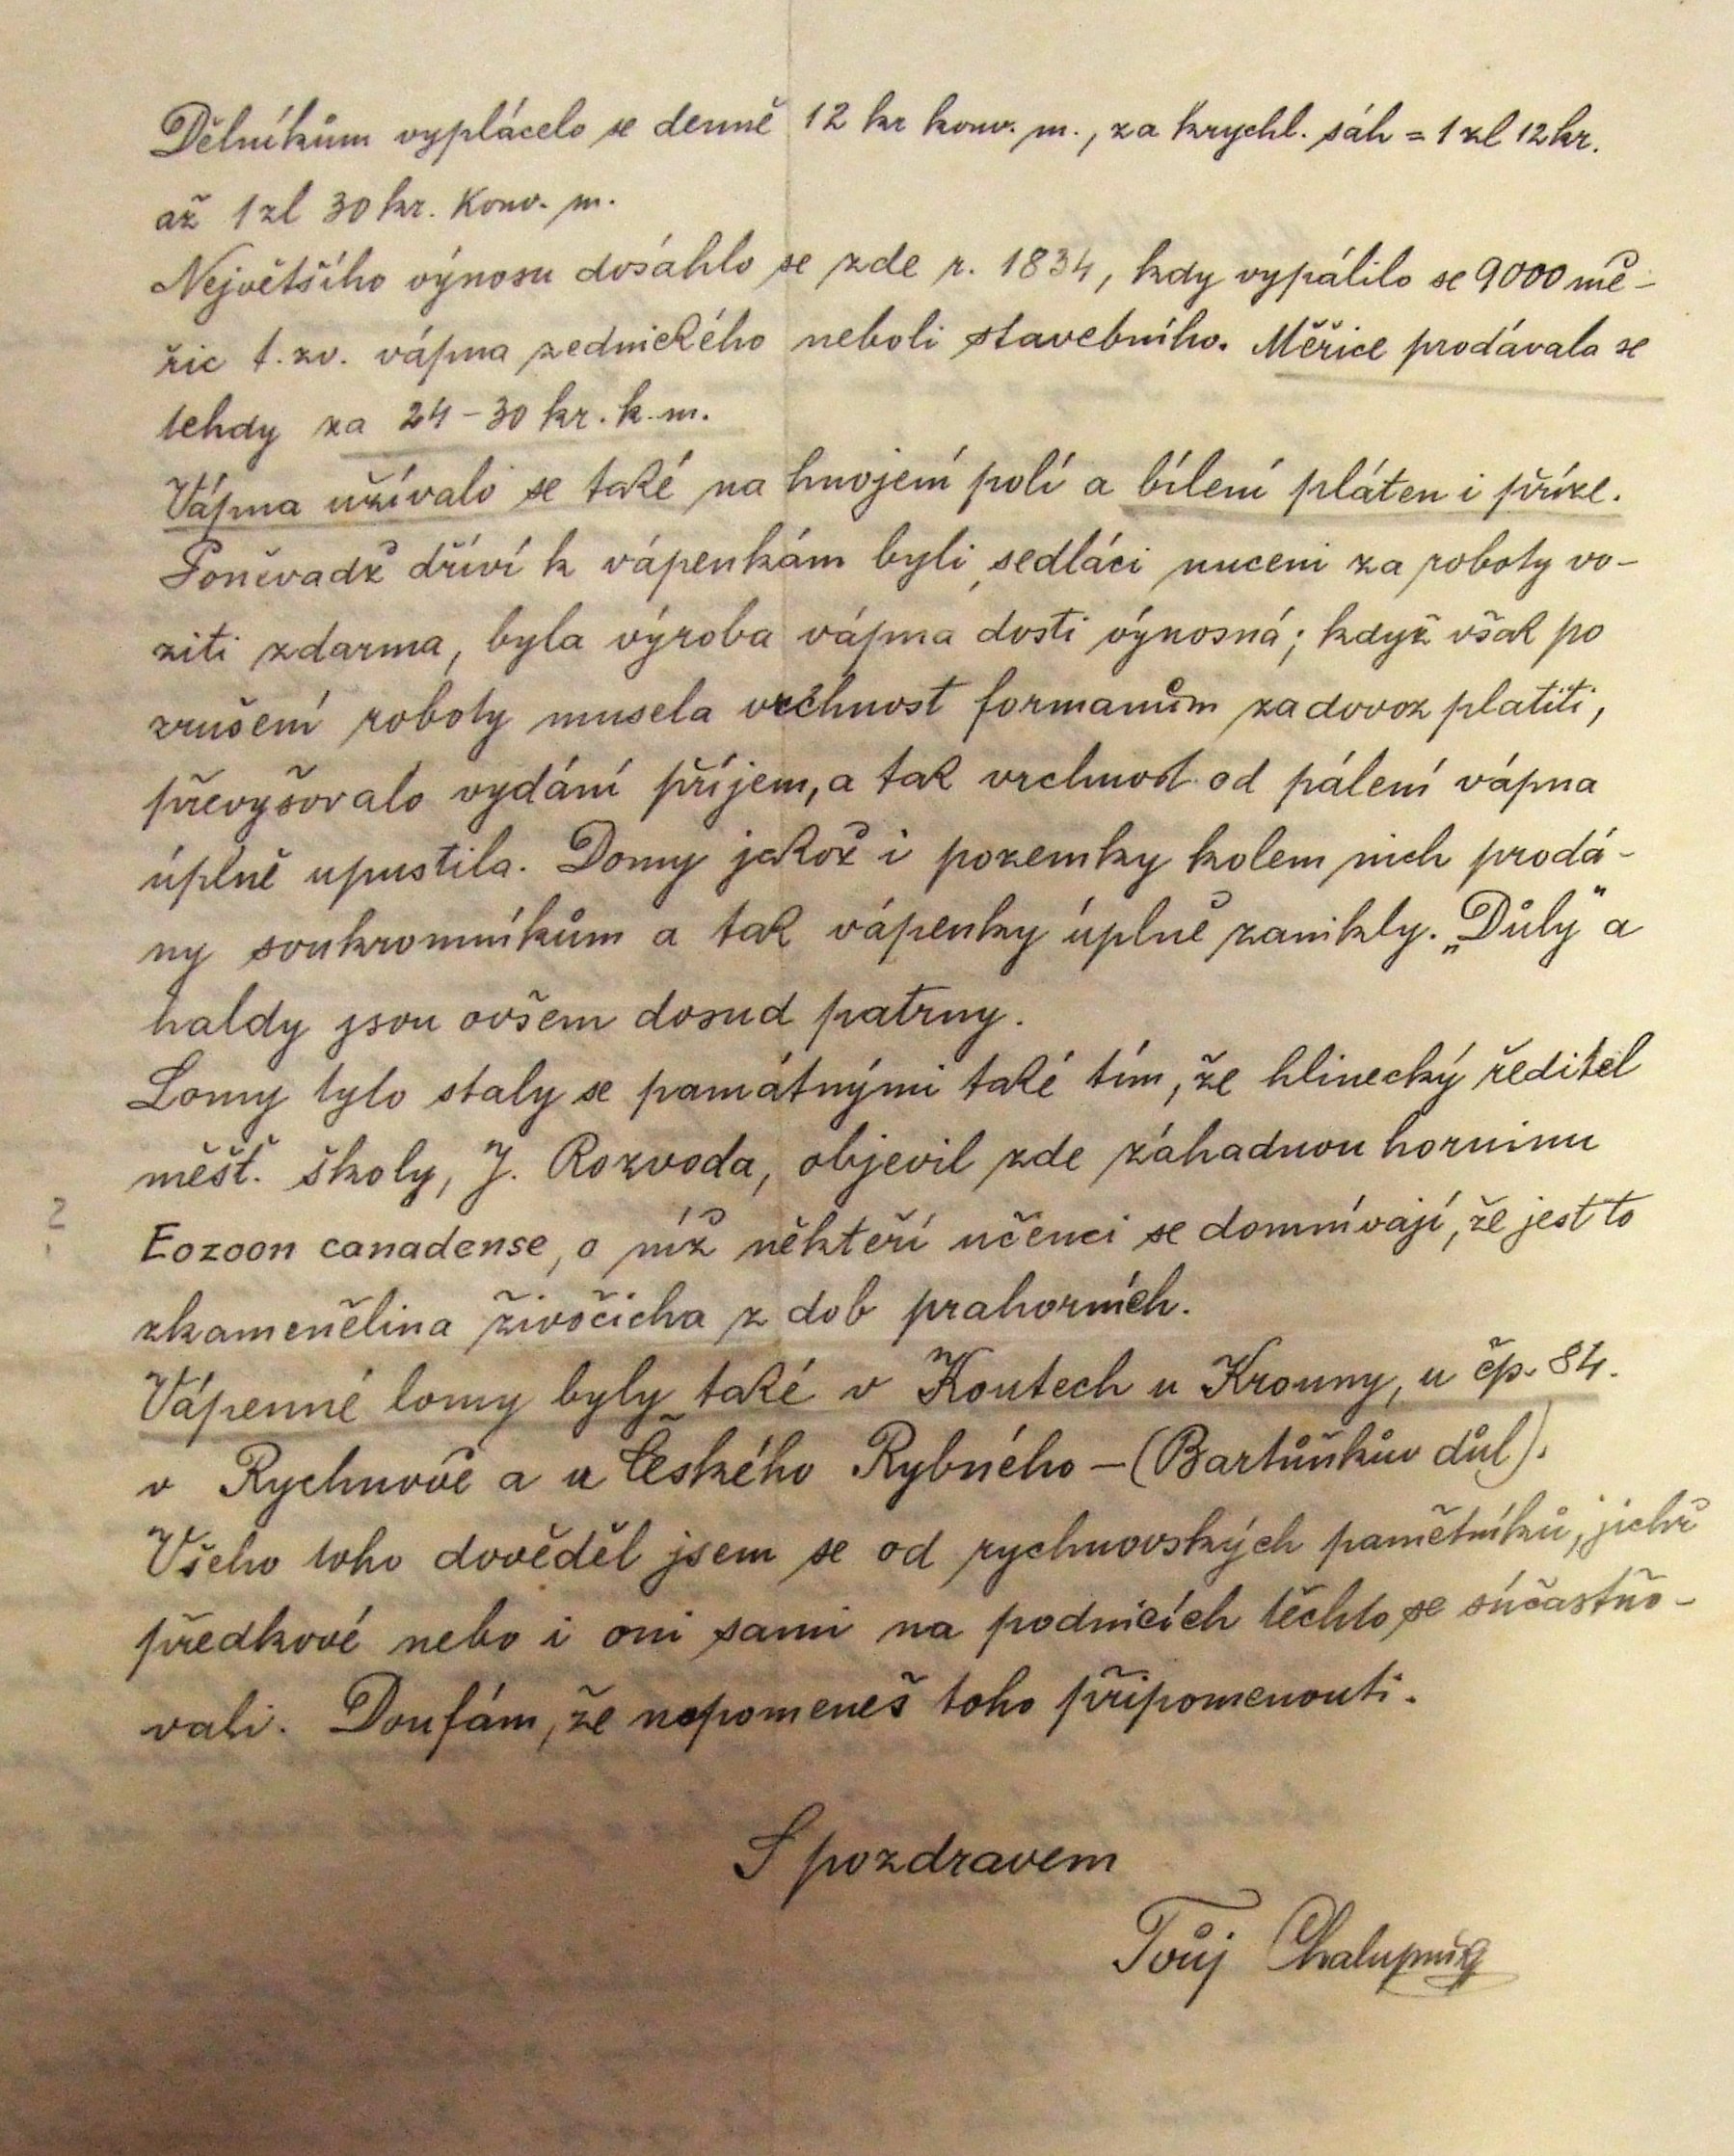 Dělníkům vyplácelo se denně 12 kr konv. m., za krychl. sáh = 1 zl 12 kr.
až 1 zl 30 kr. Konv. m.
Největšího výnosu dosáhlo se zde r. 1834, kdy vypálilo se 9000 mě-
řic t. zv. vápna zednického neboli stavebního. Měřice prodávala se
tehdy za 24-30 kr. k. m.
Vápna užívalo se také na hnojení polí a bílení pláten i příze.
Poněvadž dříví k vápenkám byli sedláci nuceni za roboty vo-
ziti zdarma, byla výroba vápna dosti výnosná; když však po
zrušení roboty musela vrchnost formanům za dovoz platiti,
převyšovalo vydání příjem, a tak vrchnost od pálení vápna
úplně upustila. Domy jakož i pozemky kolem nich prodá-
ny soukromníkům a tak vápenky úplně zanikly. „Důly" a
haldy jsou ovšem dosud patrny.
Lomy tyto staly se památnými také tím, že hlinecký ředitel
měšť. školy, J. Rozvoda, objevil zde záhadnou horninu
? Eozoon canadense, o níž někteří učenci se domnívají, že jest to
zkamenělina živočicha z dob prahorních.
Vápenné lomy byly také v Koutech u Krouny, u čp. 84.
v Rychnově a u Českého Rybného - (Bartůňkův důl).
Všeho toho dověděl jsem se od rychnovských pamětníků, jichž
předkové nebo i oni sami na podnicích těchto se súčastňo-
vali. Doufám, že nepomeneš toho připomenouti.
S pozdravem
Tvůj Chalupník